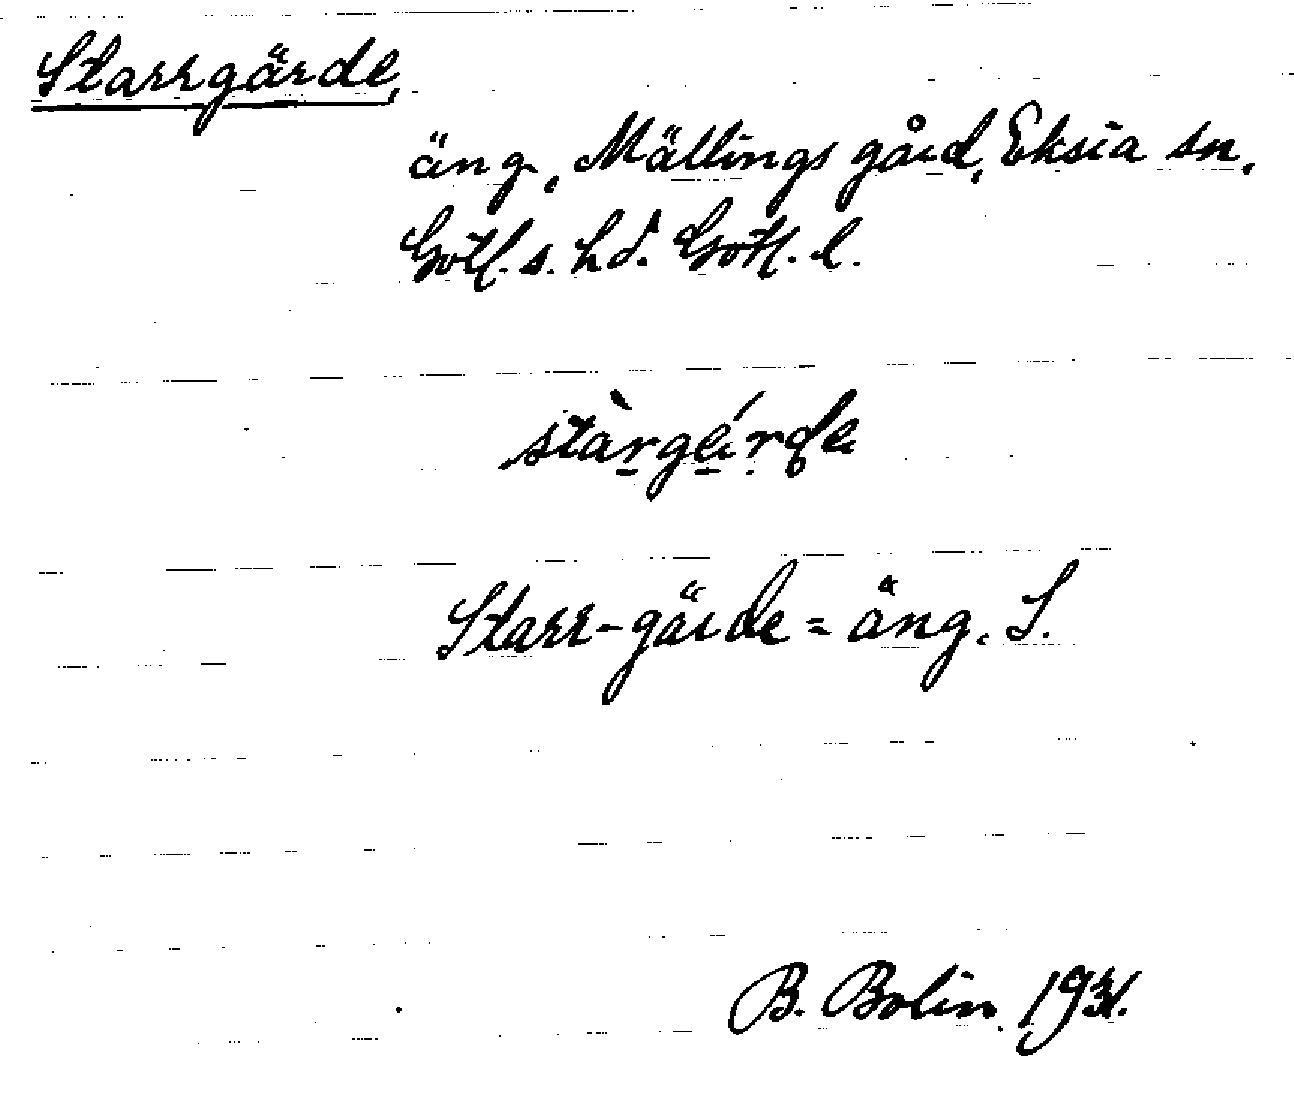 Starrgärde,
äng, Mällings gård, Eksta sn,
Gotl. s. hd. Gotl. l.
stàrgǽrde
Starr-gärde = äng. S.
B. Bolin. 1931.